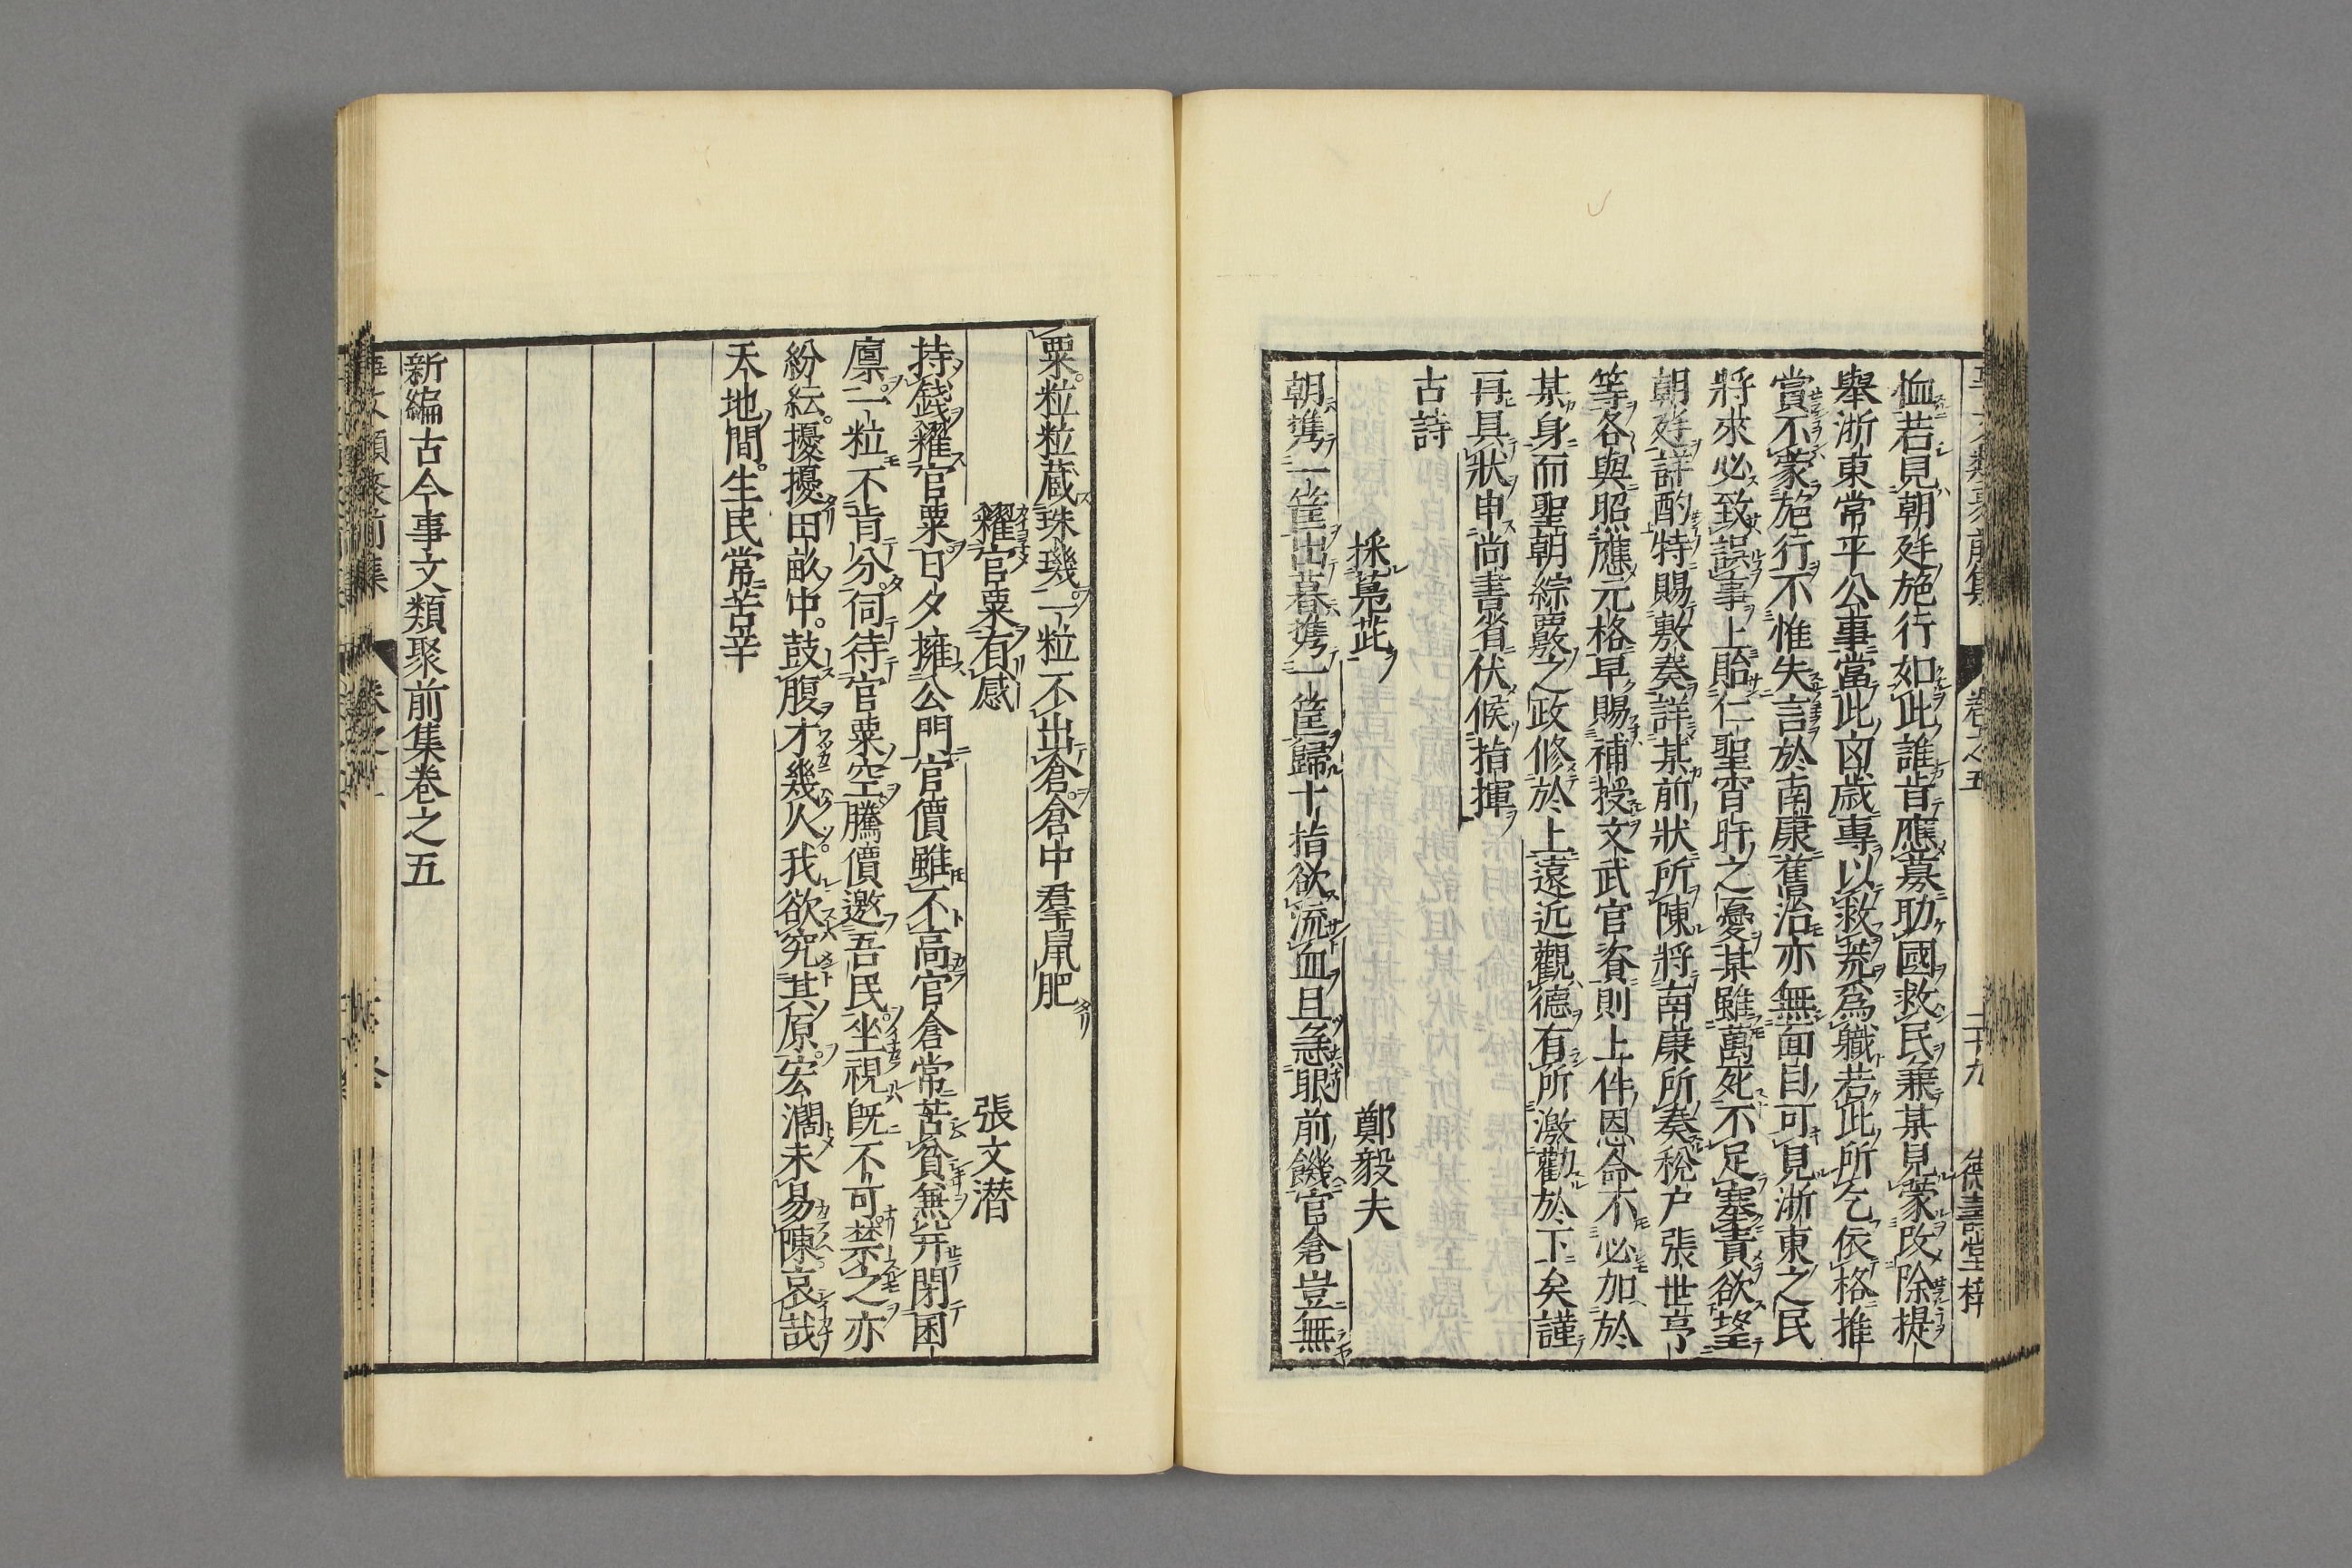 恤若見朝廷施行如此誰肯應募助國救民兼某見蒙改除提
舉浙東常平公事當此凶歲專以救荒爲職若此所乞依格推
賞不蒙施行不惟失言於南康舊治亦無面目可見浙東之民
將來必致誤事上貽仁聖宵旰之憂某雖萬死不足塞責欲望
朝廷詳酌特賜敷奏詳某前狀所陳將南康所奏稅户張世亨
等各與照應元格早賜補授文武官資則上件恩命不必加於
某身而聖朝綜覈之政修於上遠近觀德有所激勸於下矣謹
再具狀申尚書省伏候指揮
古詩
採鳧茈 鄭毅夫
朝攜一筐出暮攜一筐歸十指欲流血且急眼前饑官倉豈無
粟粒粒藏珠璣一粒不出倉倉中羣鼠肥
糴官粟有感 張文潛
持錢糴官粟日夕擁公門官價雖不高官倉常苦貧無并閉困
廪一粒不肯分伺待官粟空騰價邀吾民坐視旣不可禁之亦
紛紜擾擾田畝中鼓腹才幾人我欲究其原宏濶未易陳哀哉
天地間生民常苦辛
新編古今事文類聚前集卷之五
卷之五 二十九 德壽堂梓